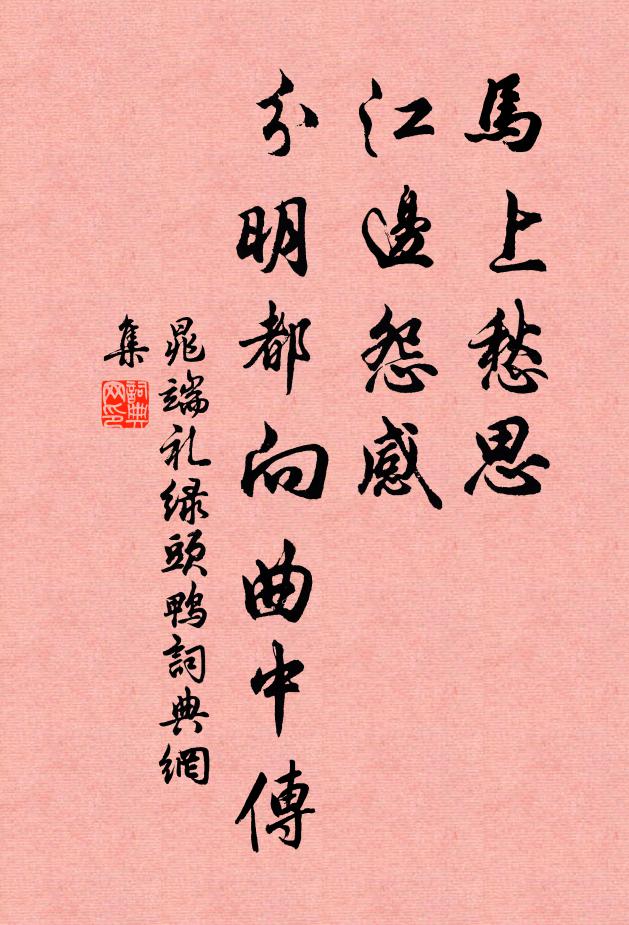 馬上愁思
江邊怨感
分明都向曲中傳
晁端礼緑頭鴨詞典網
集
詞典
网印